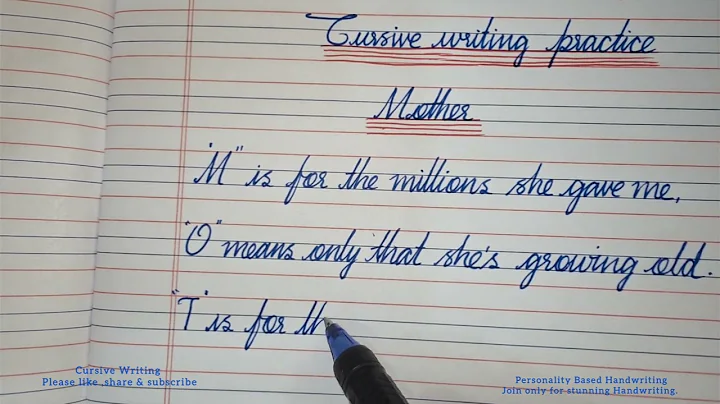 Cursive writing practice
Mother
"M" is for the millions she gave me,
"O" means only that she's growing old.
"T" is for th
Cursive Writing
Please like ,share & subscribe
Personality Based Handwriting
Join only for stunning Handwriting.